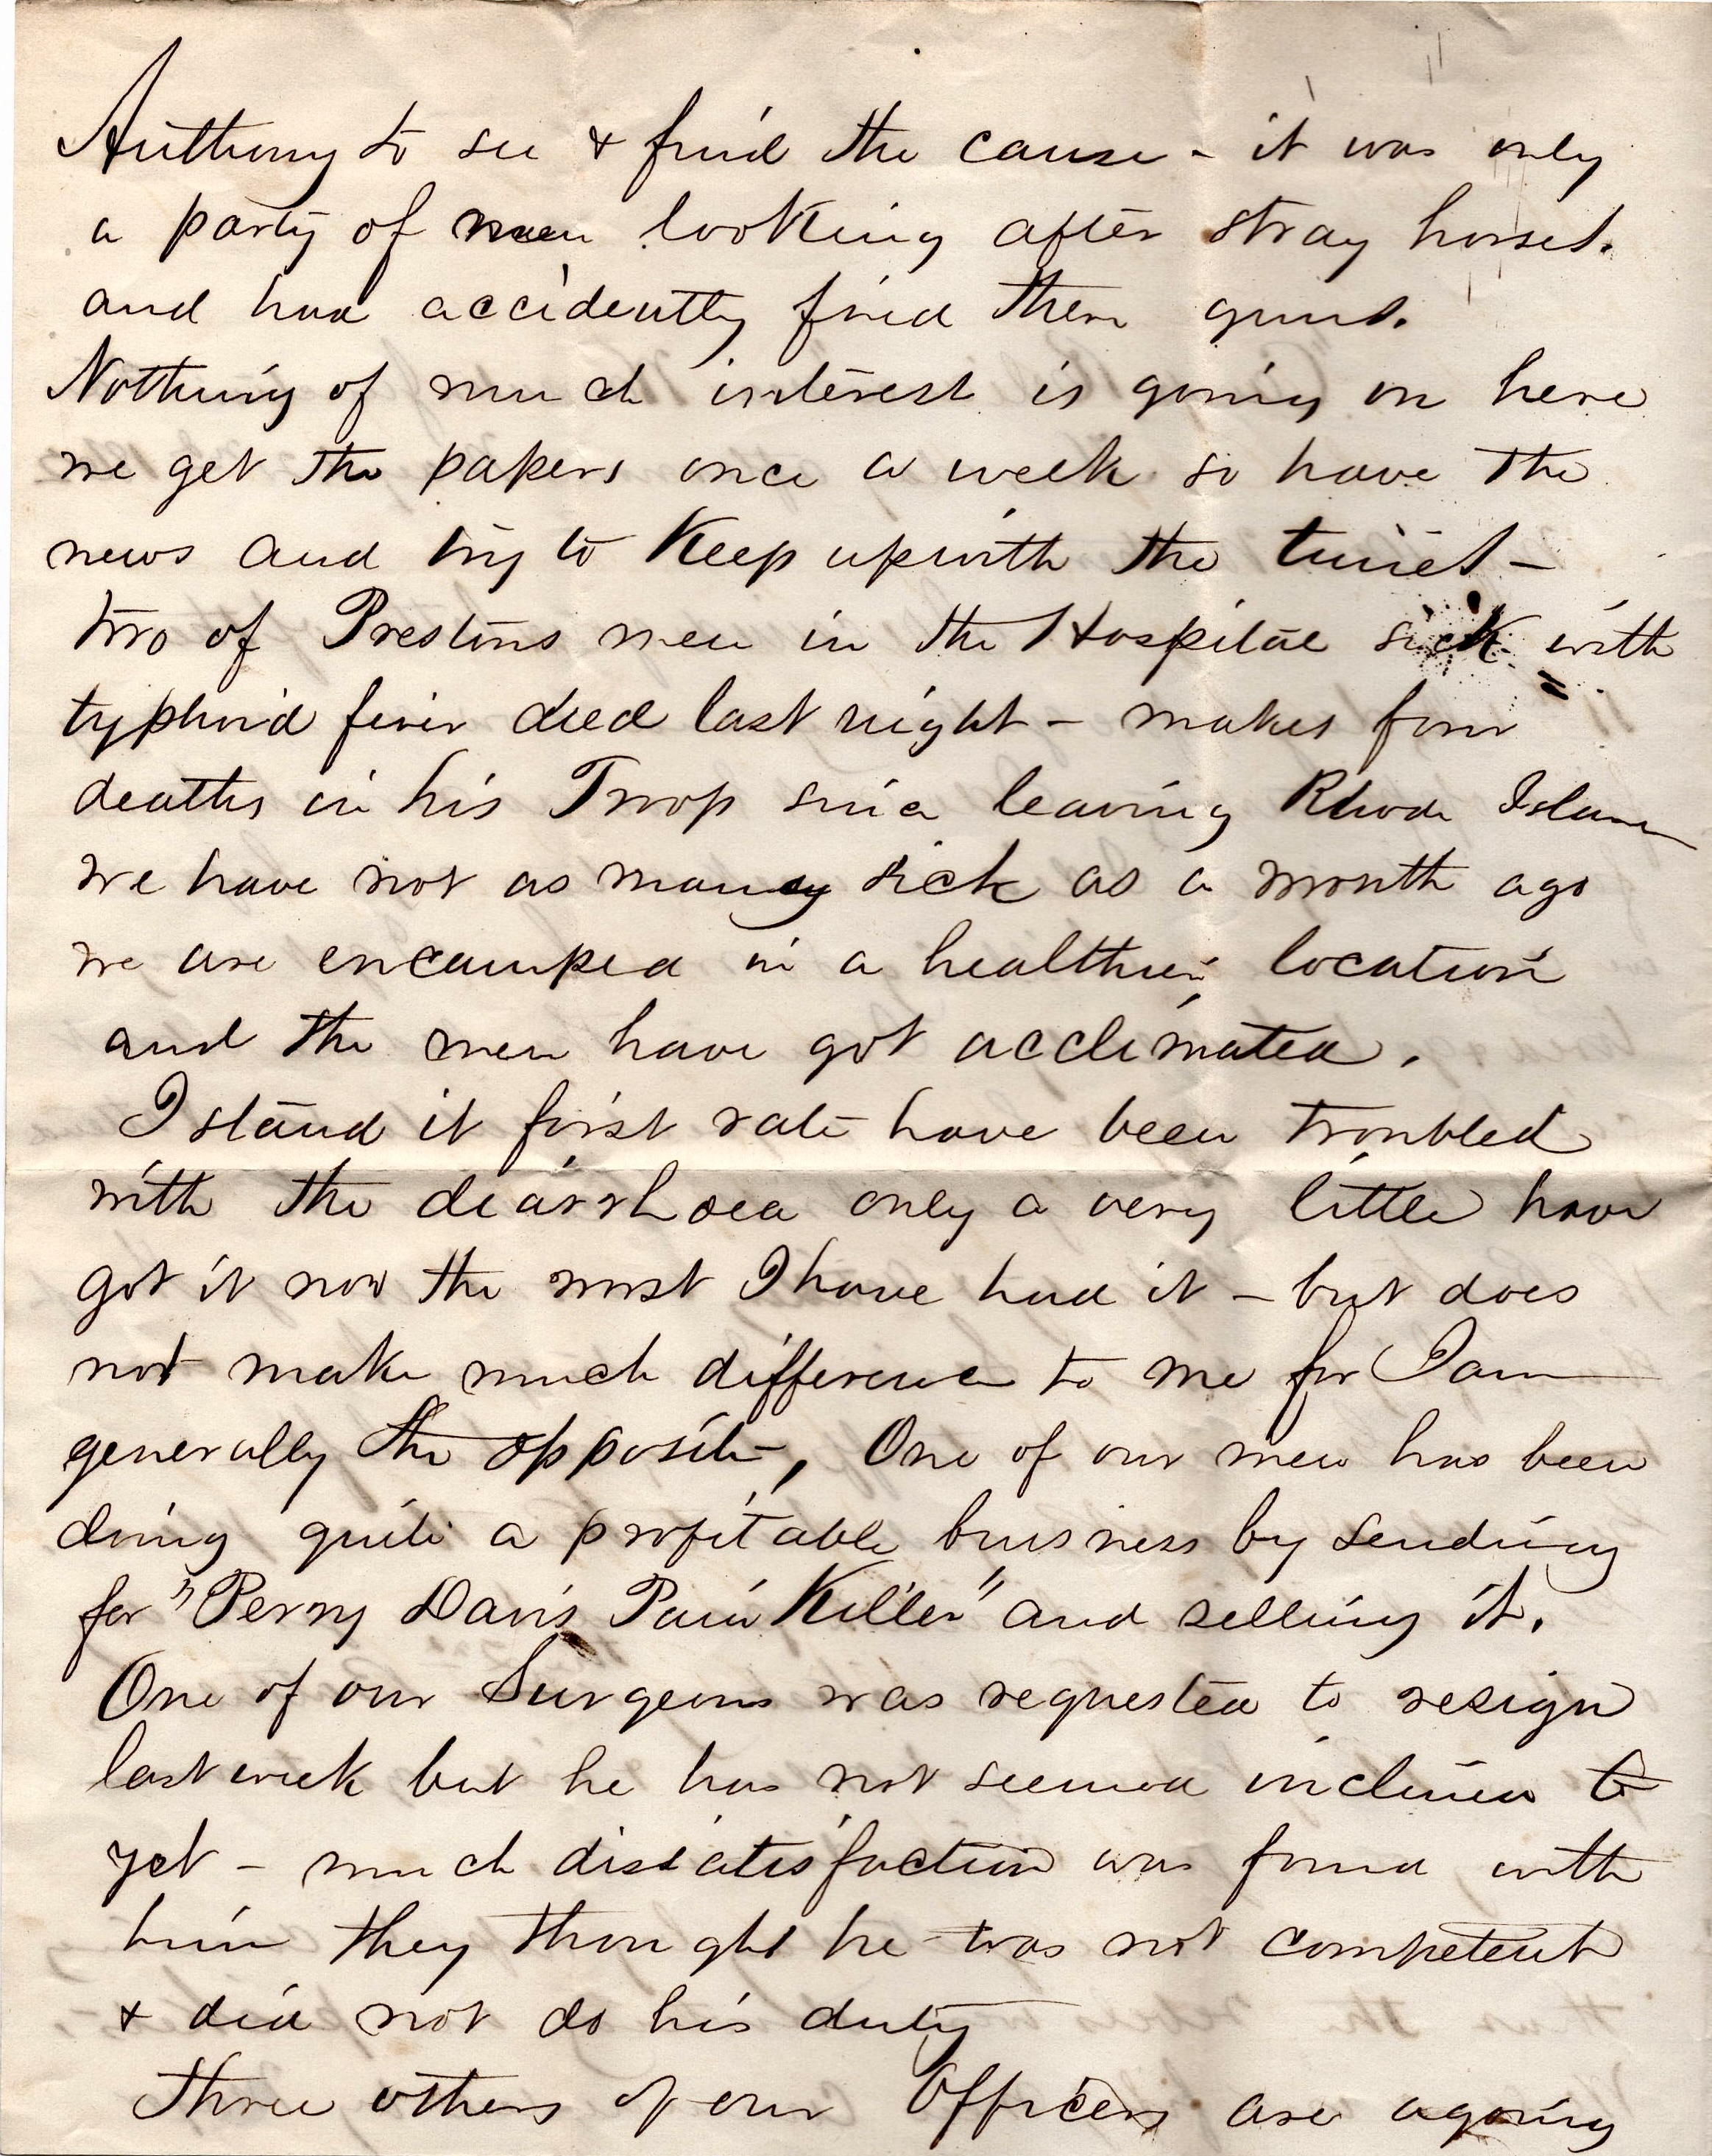 Anthony to see & find the cause - it was only
a party of men looking after stray horses.
and had accidently fired them guns.
Nothing of much interest is going on here
we get the papers once a week so have the
news and try to Keep up with the times -
two of Prestons men in the Hospital sick with
typhoid fever died last night - makes four
deaths in his Troop since leaving Rhode Island
we have not as many sick as a month ago
we are encamped in a healthier location
and the men have got acclimated.
I stand it first rate have been troubled
with the diarrhoea only a very little have
got it now the most I have had it - but does
not make much difference to me for I am
generally the opposite, One of our men has been
doing quite a profitable business by sending
for "Perry Davis Pain Killer" and selling it.
One of our Surgeons was requested to resign
last week but he has not seemed inclined to
yet - much dissatisfaction was found with
him they thought he was not competent
& did not do his duty
three others of our Officers are agoing